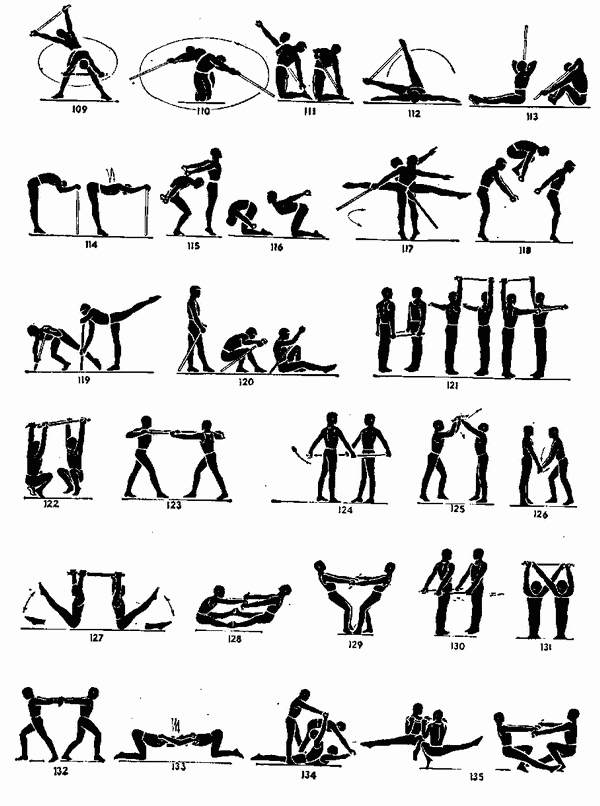 109 110 111 112 113
114 115 116 117 118
119 120 121
122 123 124 125 126
127 128 129 130 131
132 133 134 135